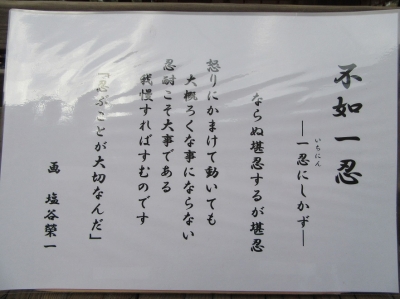 不如一忍
いちにん
―一忍にしかず―
ならぬ堪忍するが堪忍
怒りにかまけて動いても
大概ろくな事にならない
忍耐こそ大事である
我慢すればすむのです
「忍ぶことが大切なんだ」
画 塩谷榮一